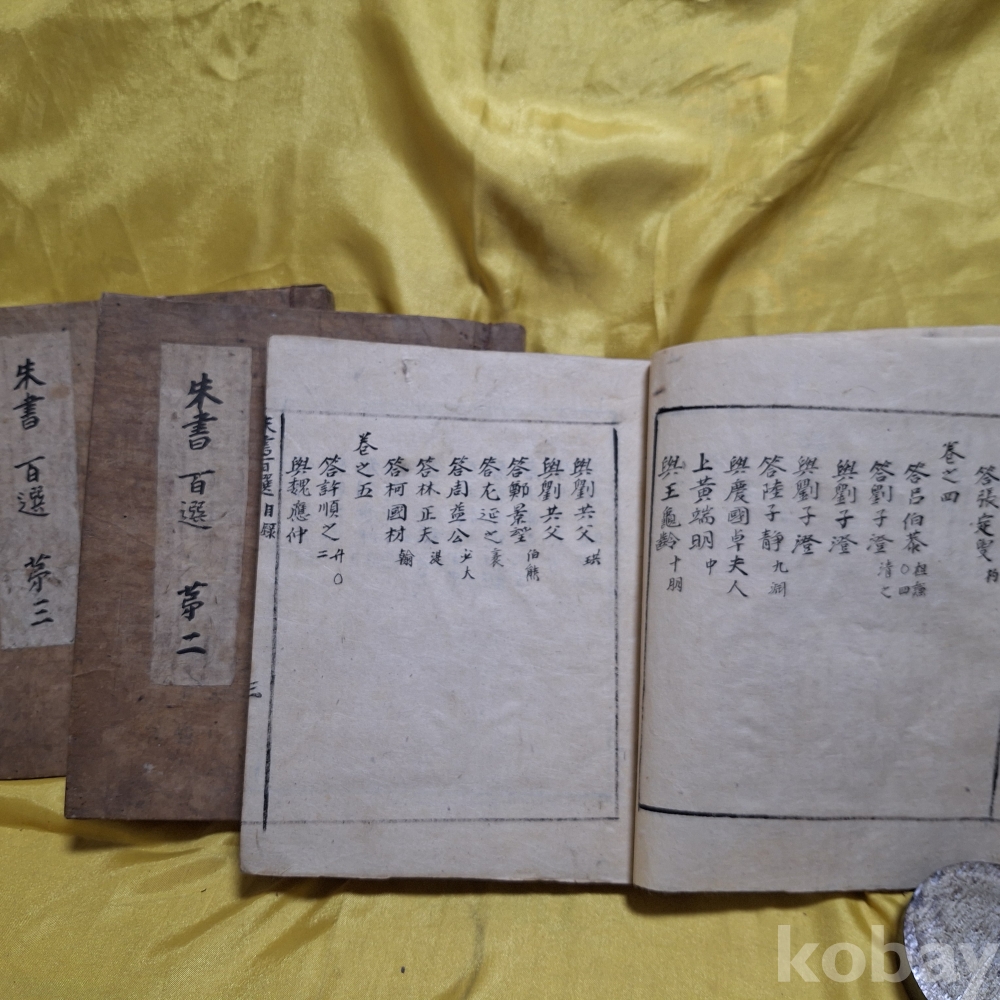 朱書百選 第三
朱書百選 第二
答張定叟 杓
卷之四
答呂伯恭 祖謙 〇四
答劉子澄 清之
與劉子澄
與劉子澄
答陸子靜 九淵
與慶國卓夫人
上黃端明 中
與王龜齡 十朋
與劉共父 珙
與劉共父
答鄭景望 伯熊
答尤延之 袤
答周益公 必大
答林正夫 湜
答柯國材 翰
卷之五
答許順之 升 〇二
與魏應仲
朱書百選目錄
三
kobay